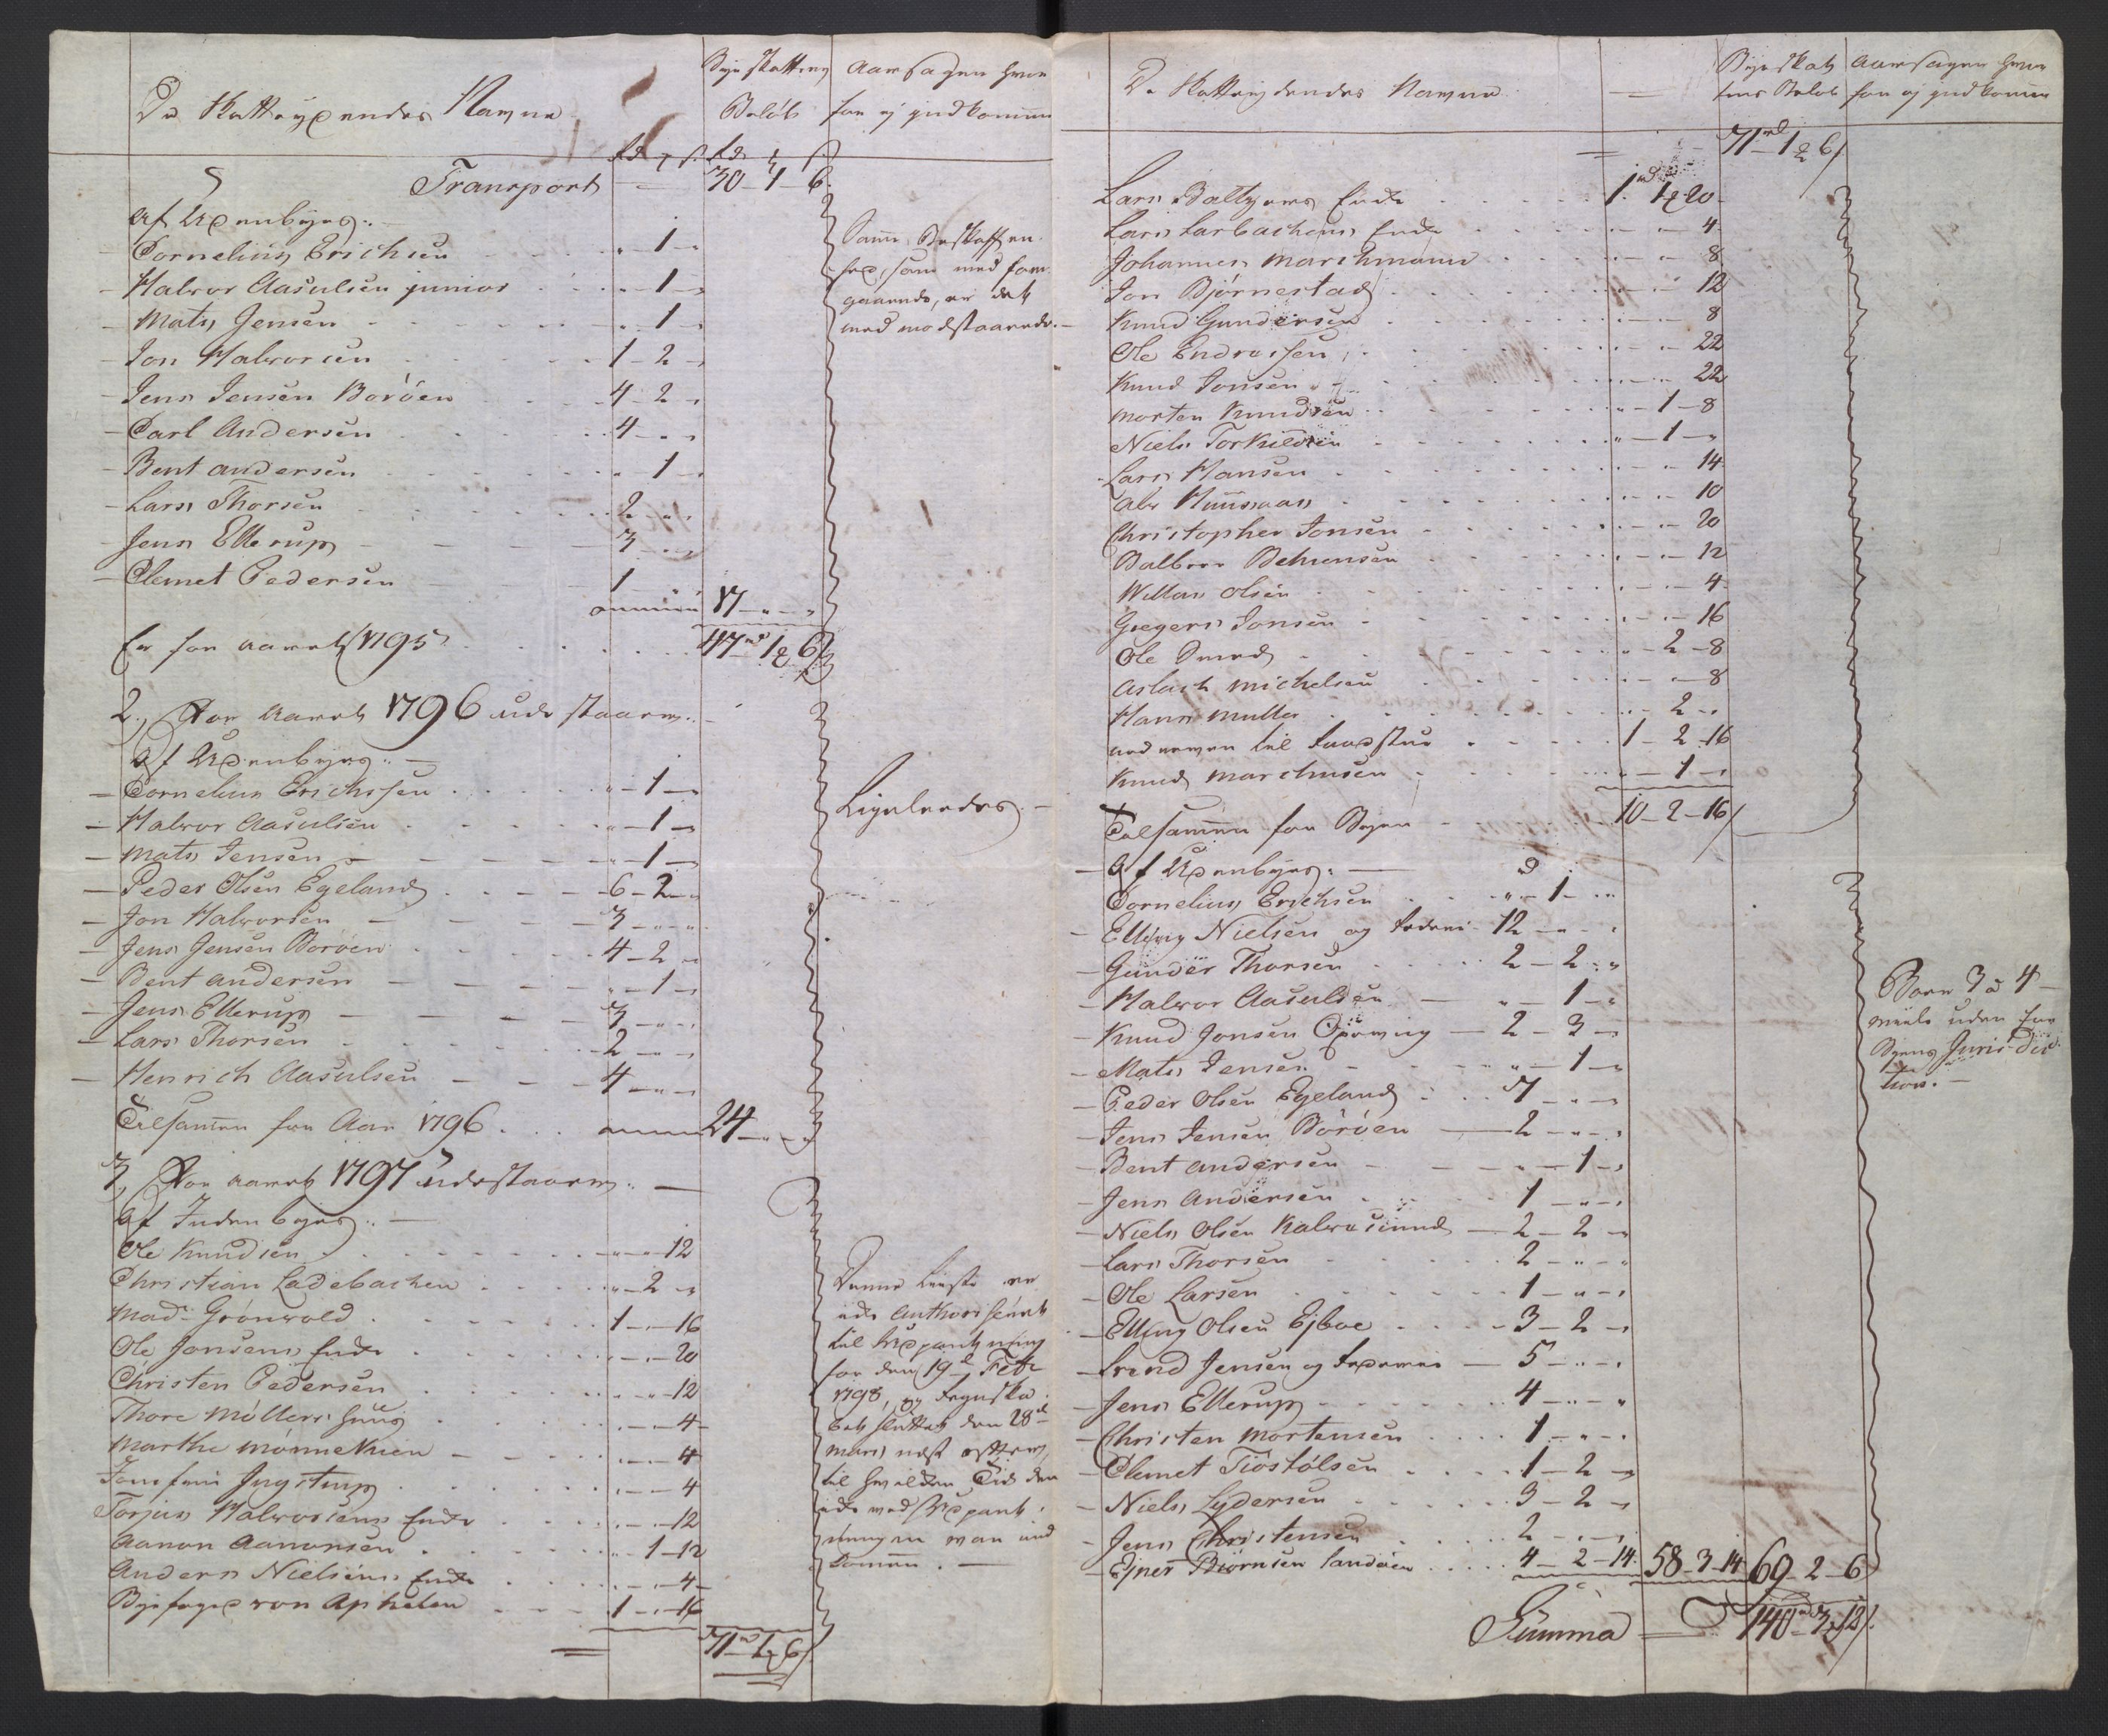 De Skatteydendes Navne
Bye Skattens Beløb
Aarsagen hvor for ej indkommen
Rd ß Rd ß
Transport 30 - 1 - 6
Af Udenbyes:
Cornelius Erichsen " - 1 - "
Halvor Aasulsen junior " - 1 - "
Mats Jensen " - 1 - "
Jon Halvorsen 1 - 2 - "
Jens Jensen Borøen 4 - 2 - "
Carl Andersen 4 - " - "
Bent Andersen " - 1 - "
Lars Thorsen 2 - " - "
Jens Ellerup 3 - " - "
Clemet Pedersen 1
17 - " - "
Samme Beskaffen-
hed, som med for-
gaaende, er det
med modstaaende.
Er for Aaret 1795 47 rd 1 6
2, For Aaret 1796 udestaar:
Af Udenbyes:
Cornelius Erichssen " - 1 - "
Halvor Aasulsen " - 1 - "
Mats Jensen " - 1 - "
Peder Olsen Egeland 6 - 2 - "
Jon Halvorsen 3 - " - "
Jens Jensen Borøen 4 - 2 - "
Bent Andersen " - 1 - "
Jens Ellerup 3 - " - "
Lars Thorsen 2 - " - "
Henrich Aasulsen 4 - " - "
Ligeledes.
Tilsamen for Aar 1796 24 - " - "
3, For Aaret 1797 udestaar:
Af Indenbyes:
Ole Knudsen " - " - 12
Christian Ladebachen " - 2 - "
Mad. Grönwold 1 - " - 16
Ole Jonsens Enke " - " - 20
Christen Pedersen " - " - 12
Thore Möllers Huus " - " - 4
Marthe Mönnekien " - " - 4
Jomfrue Jngstrup " - " - 4
Torjus Halvorsens Enke " - " - 12
Aanon Aanonsen " - 1 - 12
Anders Nielsens Enke " - " - 4
Byefoged von Aphelen 1 - " - 16
71 rd 1 6
Denne Liste er
ei Authoriseret
til Udpantning
før den 19 Febr
1798, og Regnska-
bet sluttet den 28
Marts næst efter,
til hvilken Tid den
ei med Udpant-
ningen var ind
kommen.
De Skatteydendes Navne
Bye Skat tens Beløb
Aarsagen hvor for ej indkommen
71 rd 1 6
Lars Baltzers Enke 1 rd 1 20
Lars Larbachens Enke " - " - 4
Johannes Marchmann " - " - 8
Jon Björnestad " - " - 12
Knud Gundersen " - " - 8
Ole Endresen " - " - 22
Knud Jonsen " - " - 22
Morten Knudsen " - 1 - 8
Niels Torkildsen " - 1 - "
Lars Hansen " - " - 14
" - " - 10
Christopher Jonsen " - " - 20
" - " - 12
Willas Olsen " - " - 4
Gregers Jonsen " - " - 16
Ole Smed " - 2 - 8
Aslach Michelsen " - " - 8
Hans Muller " - 2 - "
1 - 2 - 16
Knud Marchusen " - 1 - "
Tilsamen for Byen 10 - 2 - 16
Af Udenbyes:
Cornelius Erichsen " - 1 - "
Elling Nielsen og 12 - " - "
Gunder Thorsen 2 - 2 - "
Halvor Aasulsen " - 1 - "
Knud Jonsen 2 - 3 - "
Mats Jensen " - 1 - "
Peder Olsen Egeland 7 - " - "
Jens Jensen Börøen 2 - " - "
Bent Andersen " - 1 - "
Jens Andersen 1 - " - "
Niels Olsen Kalvesund 2 - 2 - "
Lars Thorsen 2 - " - "
Ole Larsen 1 - " - "
Elling Olsen Ejboe 3 - 2 - "
Trend Jensen og 5 - " - "
Jens Ellerup 4 - " - "
Christen Mortensen 1 - " - "
Clemet Tiostølsen 1 - 2 - "
Niels Lydersen 3 - 2 - "
Jens Christensen 2 - " - "
Ejner Biörnsen Sandøen 4 - 2 - 14 58 - 3 - 14 69 - 2 - 6
Boer 3 a 4
Miile uden for
Byens Jurisdic-
tion.
Summa 140 rd 3 12